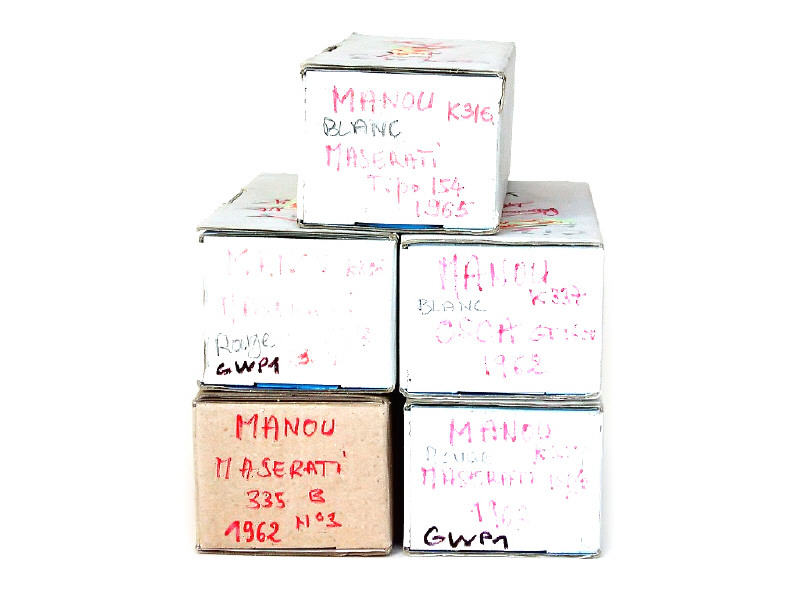 MANOU K316
BLANC
MASERATI
Tipo 154
1965
MANOU
Rouge
GWP1
MANOU
BLANC K337
OSCA
1962
MANOU
MASERATI
335 B
1962 N°3
MANOU
MASERATI
GWP1